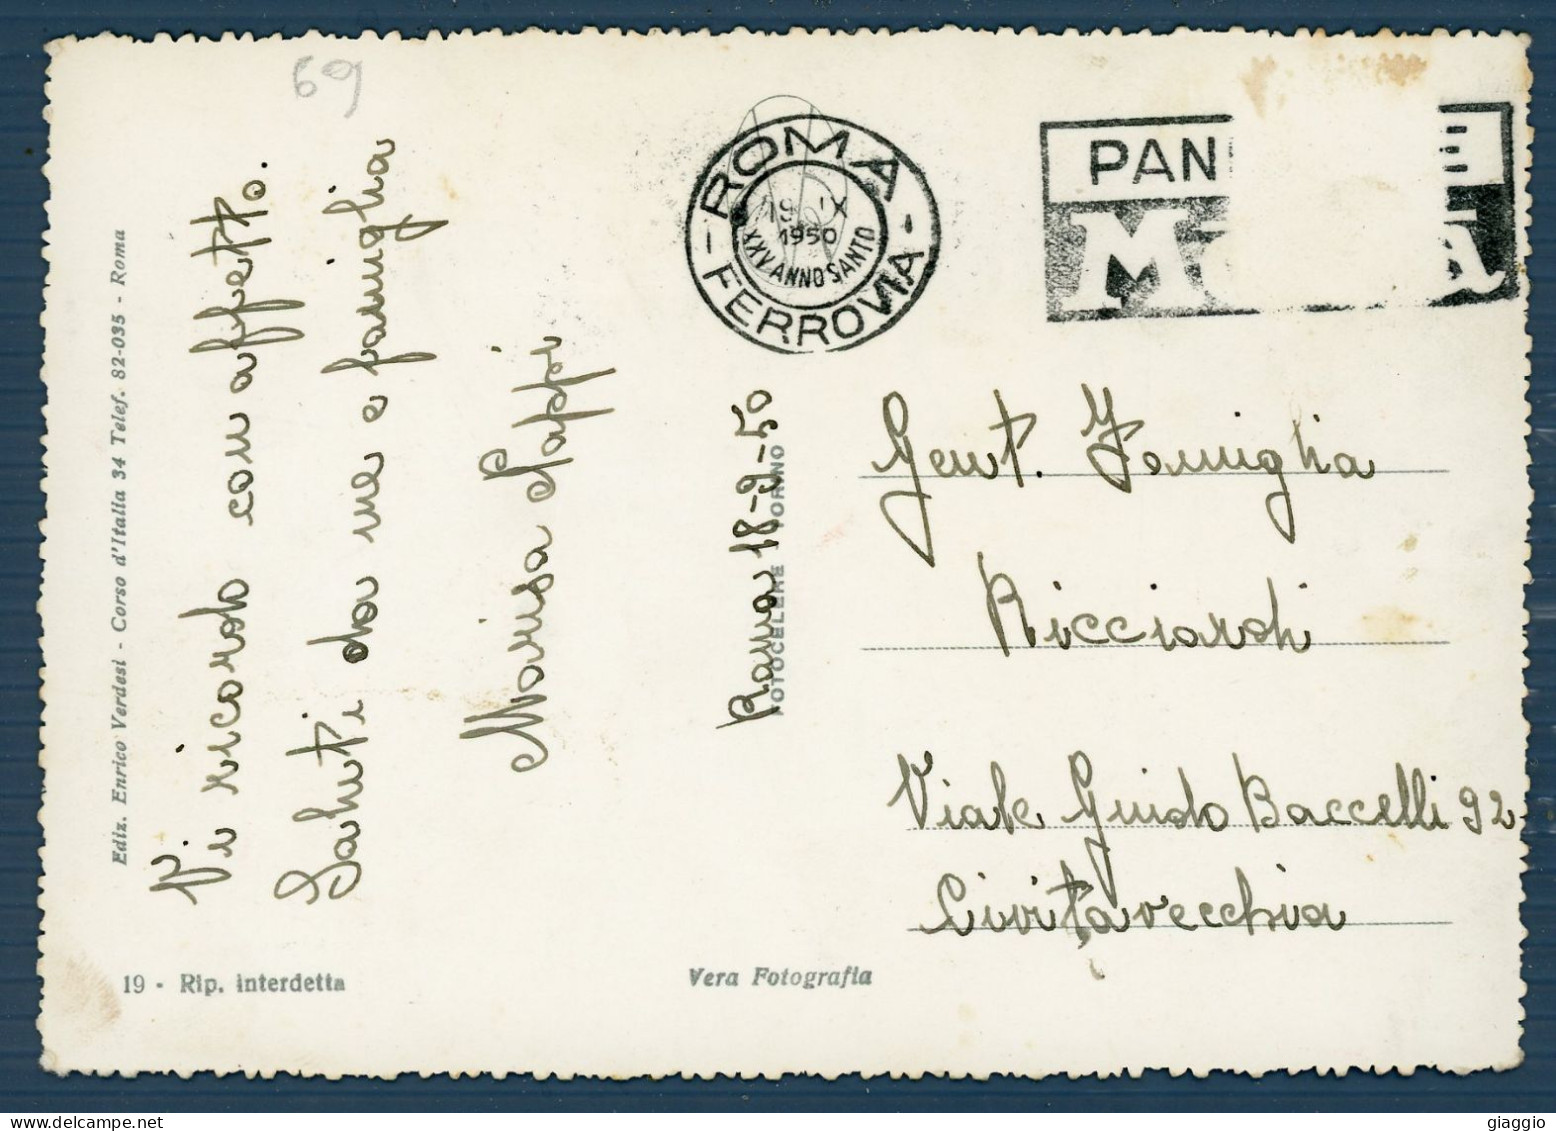 69
Ediz. Enrico Verdesi - Corso d'Italia 34 Telef. 82-035 - Roma
Vi ricordo con affetto.
Saluti da me e famiglia
Marisa Sappi
Roma 18-9-50
FOTOCELERE TORINO
ROMA
19 IX
1950
XXV ANNO SANTO
- FERROVIA -
PAN
Gent. Famiglia
Ricciardi
Viale Guido Baccelli 92
Civitavecchia
19 - Rip. interdetta
Vera Fotografia
giaggio